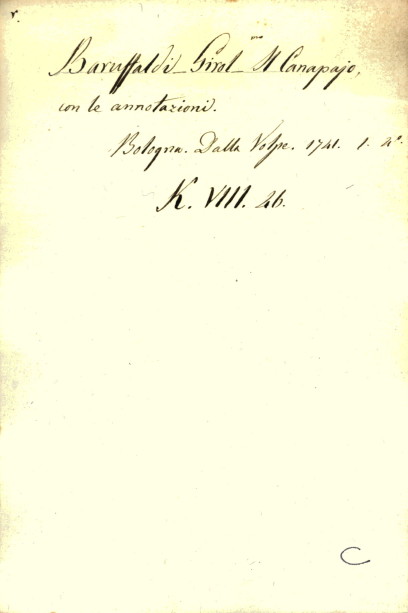 r.
Baruffaldi Girol.mo Il Canapajo,
con le annotazioni.
Bologna. Dalla Volpe. 1741. 1. 4.o
K. VIII. 26.
C